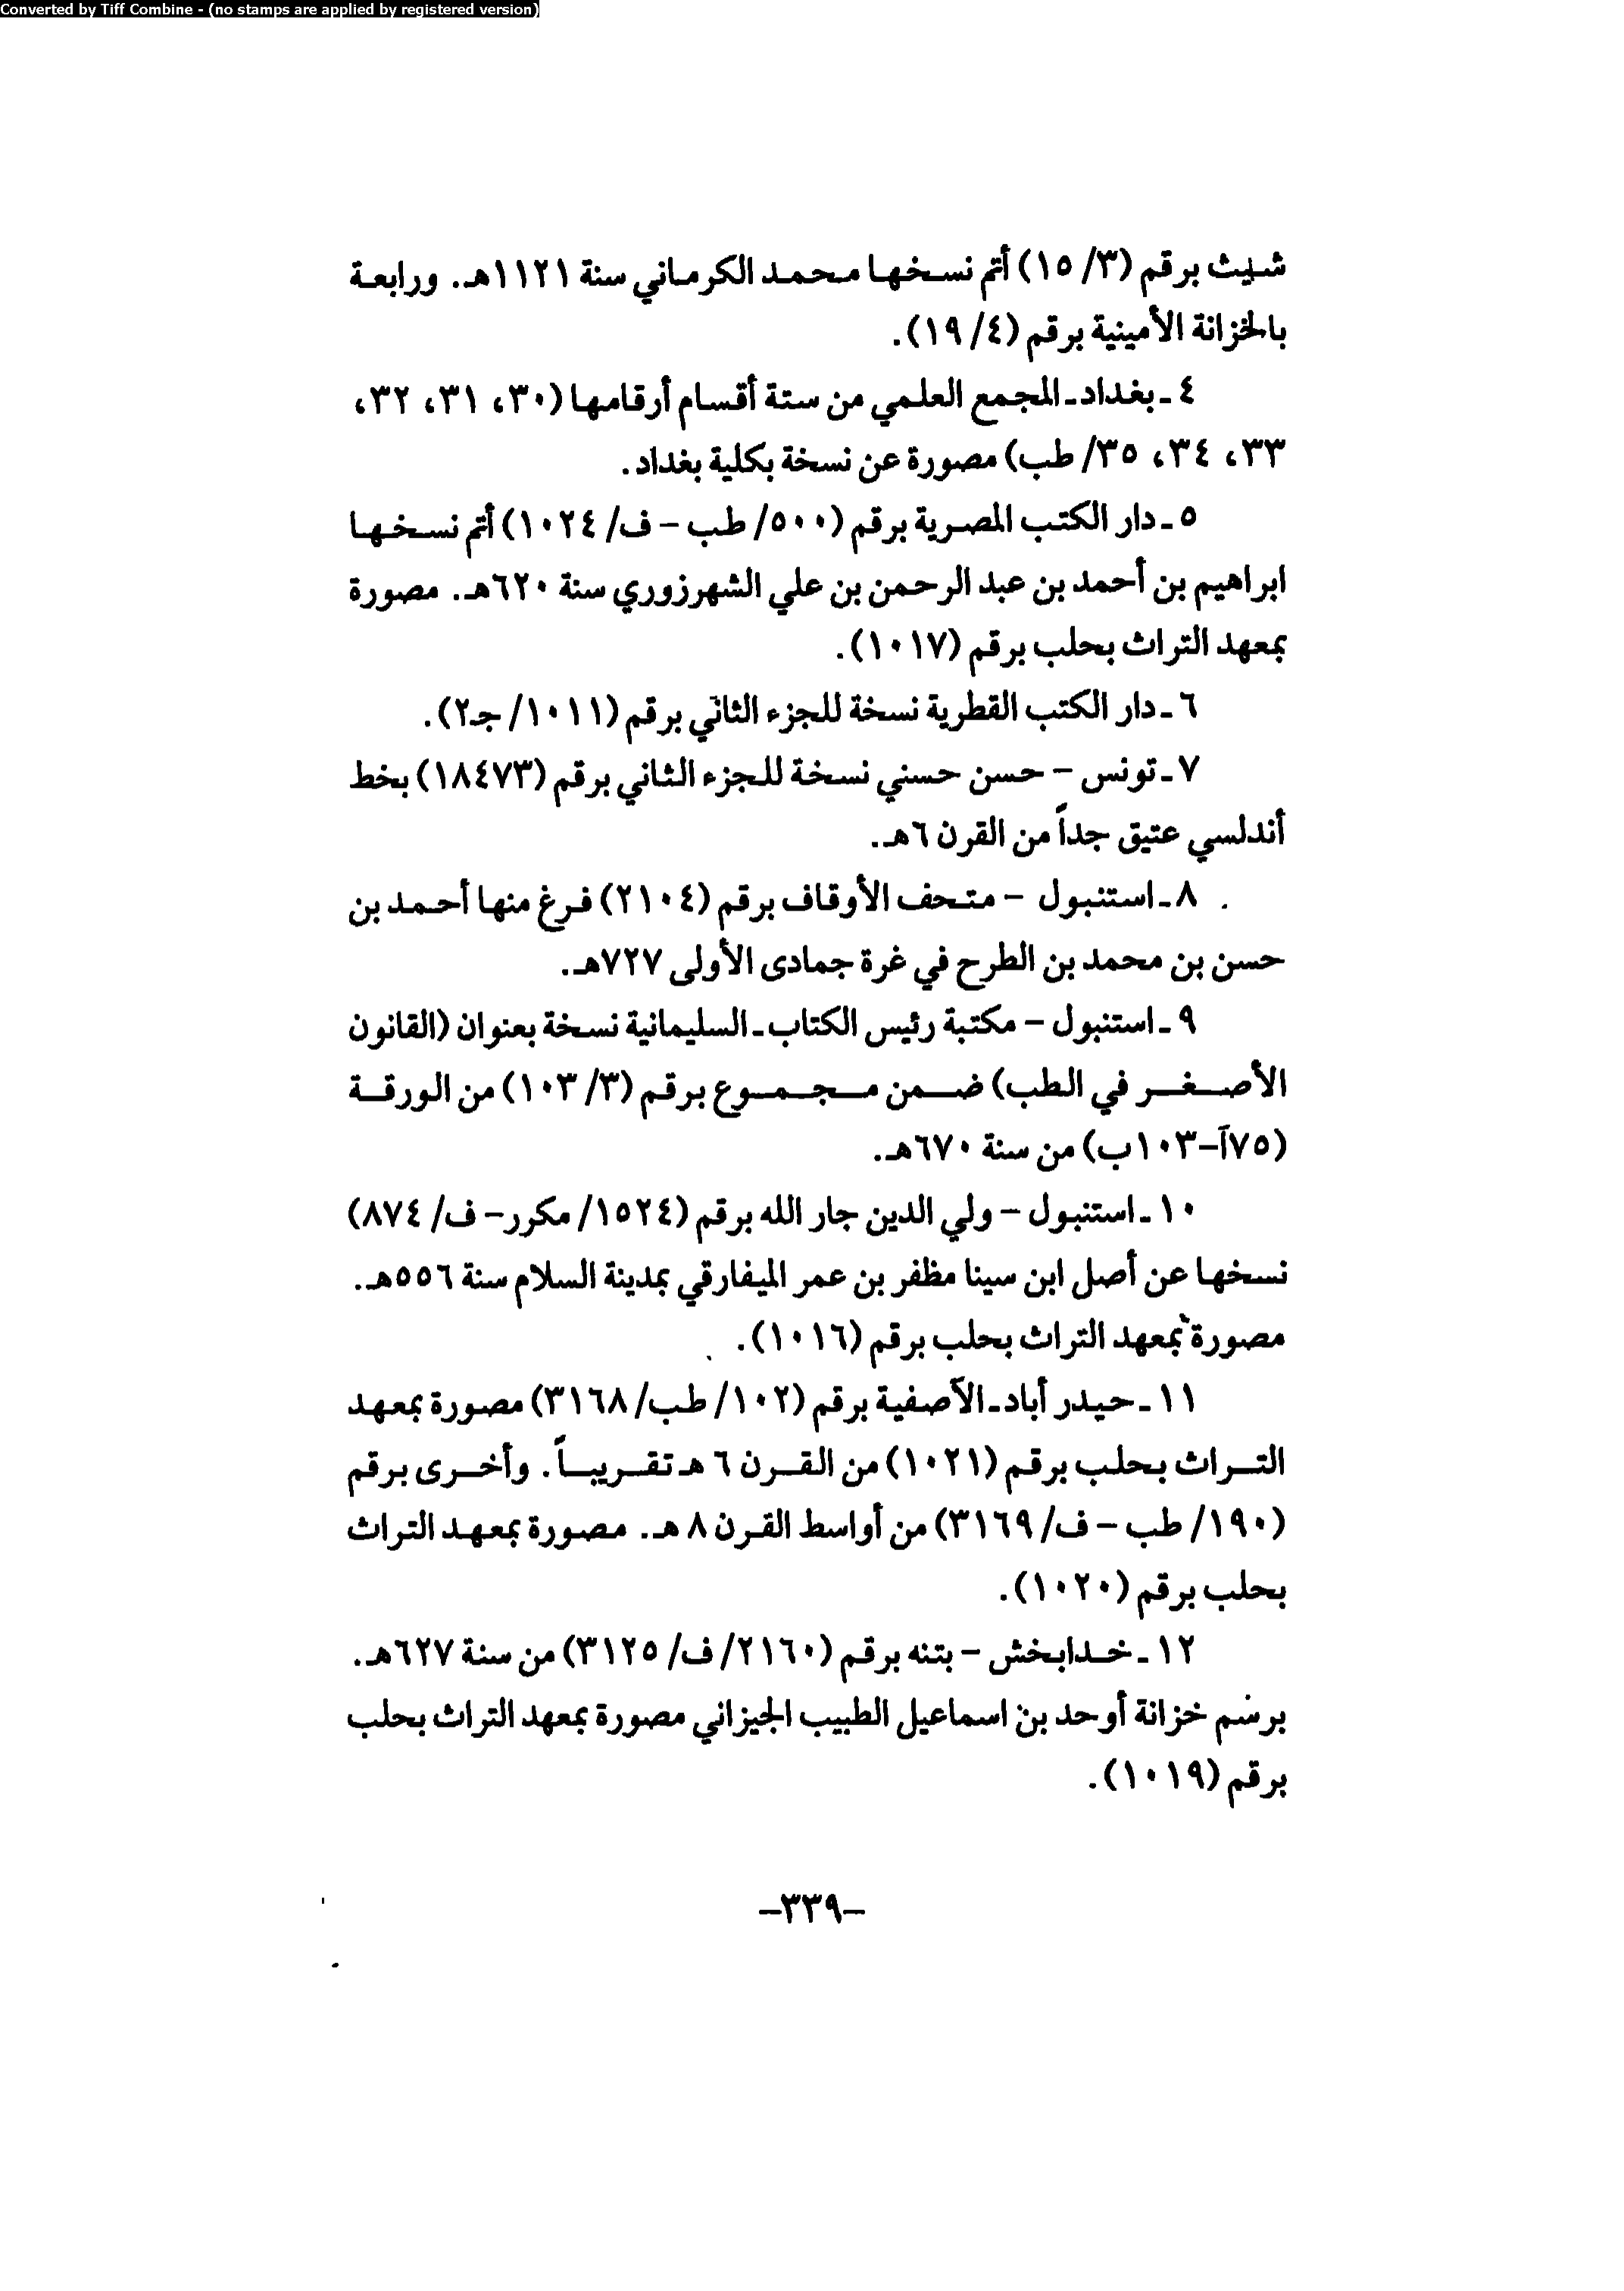 Converted by Tiff Combine - (no stamps are applied by registered version)
شيث برقم (٣/ ١٥) أتم نسخها محمد الكرماني سنة ١١٢١هـ. ورابعة
بالخزانة الأمينية برقم (٤/ ١٩).
٤ ـ بغداد ـ المجمع العلمي من ستة أقسام أرقامها (٣٠، ٣١، ٣٢،
٣٣، ٣٤، ٣٥/ طب) مصورة عن نسخة بكلية بغداد.
٥ ـ دار الكتب المصرية برقم (٥٠٠/ طب – ف/ ١٠٢٤) أتم نسخها
ابراهيم بن أحمد بن عبد الرحمن بن علي الشهرزوري سنة ٦٢٠هـ. مصورة
بمعهد التراث بحلب برقم (١٠١٧).
٦ ـ دار الكتب القطرية نسخة للجزء الثاني برقم (١٠١١/ جـ٢).
٧ ـ تونس – حسن حسني نسخة للجزء الثاني برقم (١٨٤٧٣) بخط
أندلسي عتيق جداً من القرن ٦هـ.
٨ ـ استنبول – متحف الأوقاف برقم (٢١٠٤) فرغ منها أحمد بن
حسن بن محمد بن الطرح في غرة جمادى الأولى ٧٢٧هـ.
٩ ـ استنبول – مكتبة رئيس الكتاب ـ السليمانية نسخة بعنوان (القانون
الأصغر في الطب) ضمن مجموع برقم (٣/ ١٠٣) من الورقة
(٧٥آ–١٠٣ب) من سنة ٦٧٠هـ.
١٠ ـ استنبول – ولي الدين جار الله برقم (١٥٢٤/ مكرر– ف/ ٨٧٤)
نسخها عن أصل ابن سينا مظفر بن عمر الميفارقي بمدينة السلام سنة ٥٥٦هـ.
مصورة بمعهد التراث بحلب برقم (١٠١٦).
١١ ـ حيدر أباد ـ الآصفية برقم (١٠٢/ طب/ ٣١٦٨) مصورة بمعهد
التراث بحلب برقم (١٠٢١) من القرن ٦ هـ تقريباً. وأخرى برقم
(١٩٠/ طب – ف/ ٣١٦٩) من أواسط القرن ٨ هـ. مصورة بمعهد التراث
بحلب برقم (١٠٢٠).
١٢ ـ خدابخش – بتنه برقم (٢١٦٠/ ف/ ٣١٢٥) من سنة ٦٢٧هـ.
برسم خزانة أوحد بن اسماعيل الطبيب الجيزاني مصورة بمعهد التراث بحلب
برقم (١٠١٩).
–٣٣٩–